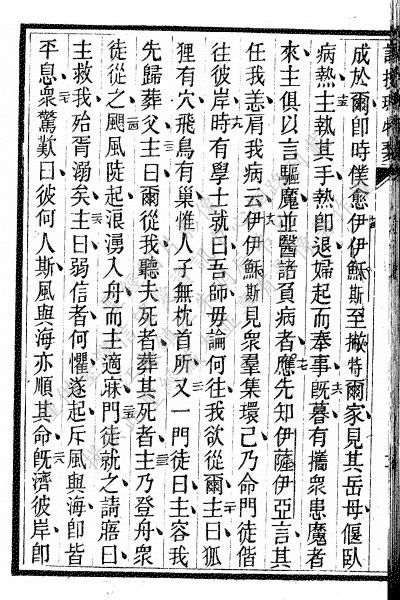 成於爾卽時僕愈伊伊穌斯至撇特爾家見其岳母偃臥
病熱主執其手熱卽退婦起而奉事旣暮有攜衆患魔者
來主俱以言驅魔並醫諸負病者應先知伊薩伊亞言其
任我恙肩我病云伊伊穌斯見衆羣集環己乃命門徒偕
往彼岸時有學士就曰吾師毋論何往我欲從爾主曰狐
狸有穴飛鳥有巢惟人子無枕首所又一門徒曰主容我
先歸葬父主曰爾從我聽夫死者葬其死者主乃登舟衆
徒從之颶風陡起浪湧入舟而主適寐門徒就之請寤曰
主救我殆胥溺矣主曰弱信者何懼遂起斥風與海卽皆
平息衆驚歎曰彼何人斯風與海亦順其命旣濟彼岸卽